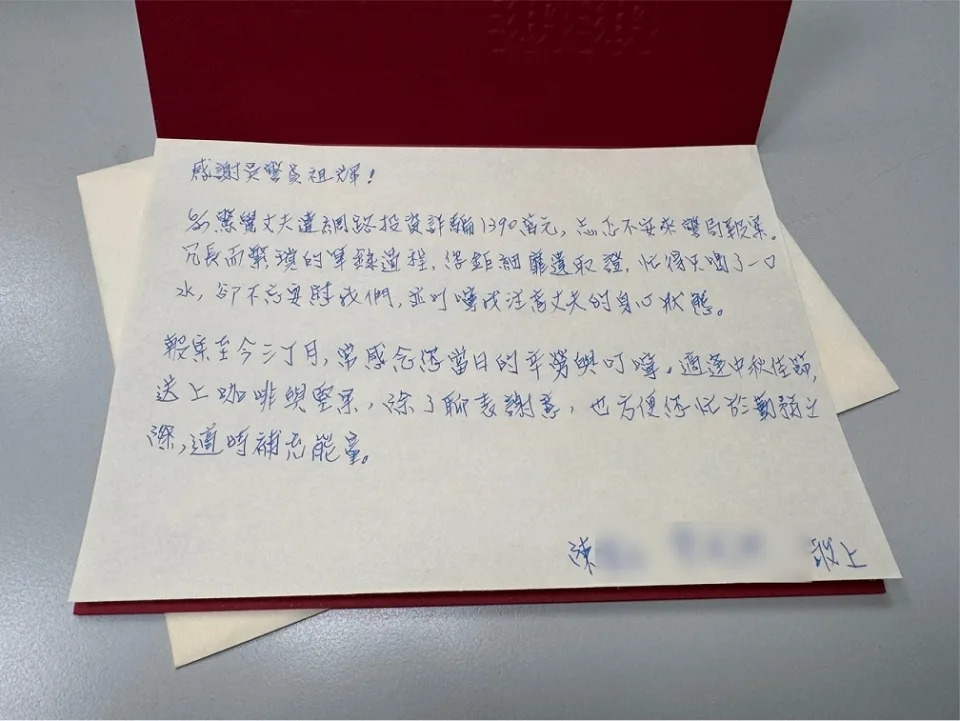 感謝吳警員祖輝！
驚覺丈夫遭網路投資詐騙1390萬元，忐忑不安來警局報案。
冗長而繁瑣的筆錄過程，您鉅細靡遺取證，忙得只喝了一口
水，卻不忘安慰我們，並叮嚀我注意丈夫的身心狀態。
報案至今三個月，常感念您當日的辛勞與叮嚀。適逢中秋佳節，
送上咖啡與堅果，除了聊表謝意，也方便您忙於勤務之
際，適時補充能量。
陳 敬上